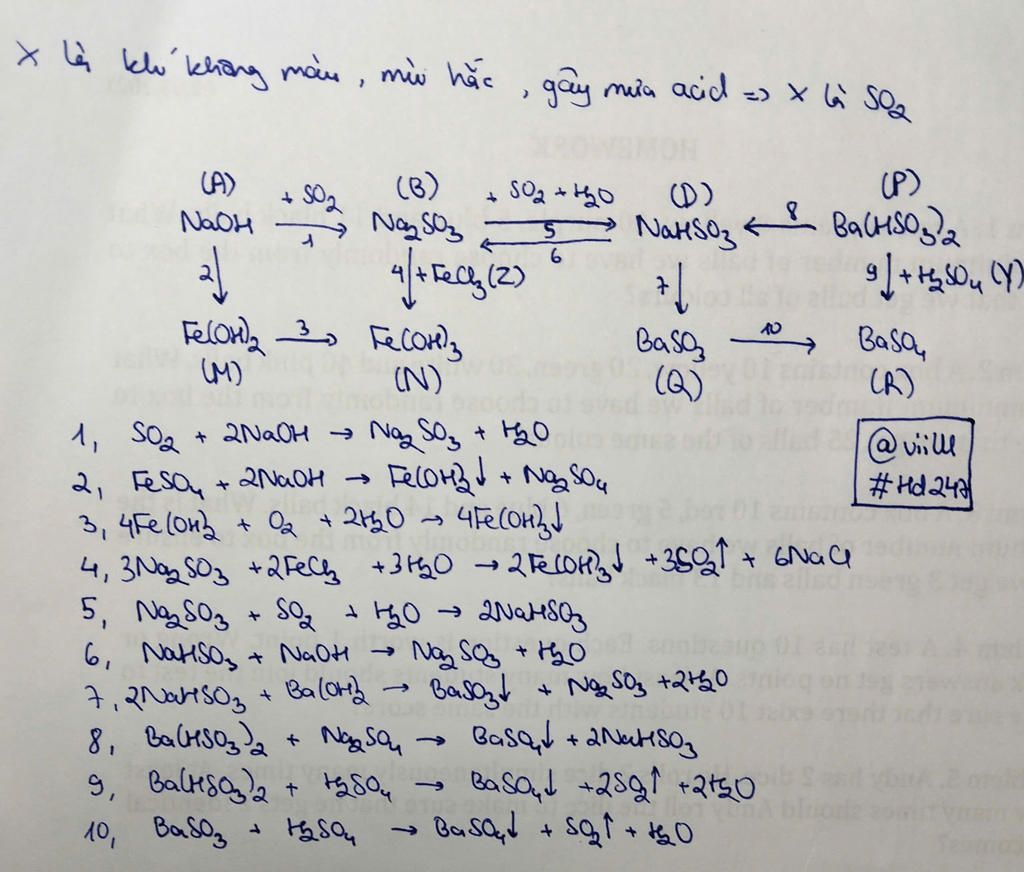 X là khí không màu, mùi hắc, gây mưa acid => X là SO2
(A) +SO2 (B) + SO2 + H2O (D) (P)
NaOH 1 Na2SO3 5 6 NaHSO3 8 Ba(HSO3)2
2 4 +FeCl3 (Z) 7 9 +H2SO4 (Y)
Fe(OH)2 3 Fe(OH)3 BaSO3 10 BaSO4
(M) (N) (Q) (R)
1, SO2 + 2NaOH → Na2SO3 + H2O
@viiw
#Hd247
2, FeSO4 + 2NaOH → Fe(OH)2↓ + Na2SO4
3, 4Fe(OH)2 + O2 + 2H2O → 4Fe(OH)3↓
4, 3Na2SO3 + 2FeCl3 + 3H2O → 2Fe(OH)3↓ + 3SO2↑ + 6NaCl
5, Na2SO3 + SO2 + H2O → 2NaHSO3
6, NaHSO3 + NaOH → Na2SO3 + H2O
7, 2NaHSO3 + Ba(OH)2 → BaSO3↓ + Na2SO3 + 2H2O
8, Ba(HSO3)2 + Na2SO4 → BaSO4↓ + 2NaHSO3
9, Ba(HSO3)2 + H2SO4 → BaSO4↓ + 2SO2↑ + 2H2O
10, BaSO3 + H2SO4 → BaSO4↓ + SO2↑ + H2O